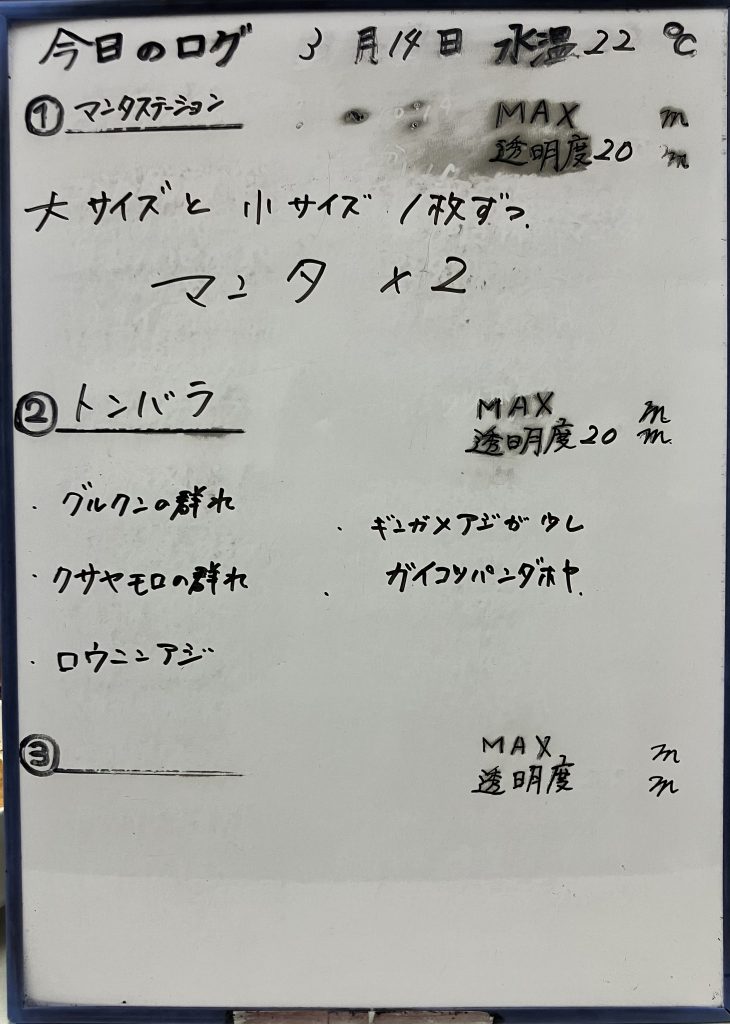 今日のログ 3月14日 水温22℃
① マンタステーション MAX m
透明度20 m
大サイズと小サイズ1枚ずつ
マンタ×2
② トンバラ MAX m
透明度20 m
・グルクンの群れ
・ギンガメアジが少し
・クサヤモロの群れ
・ガイコツパンダホヤ
・ロウニンアジ
③ MAX m
透明度 m